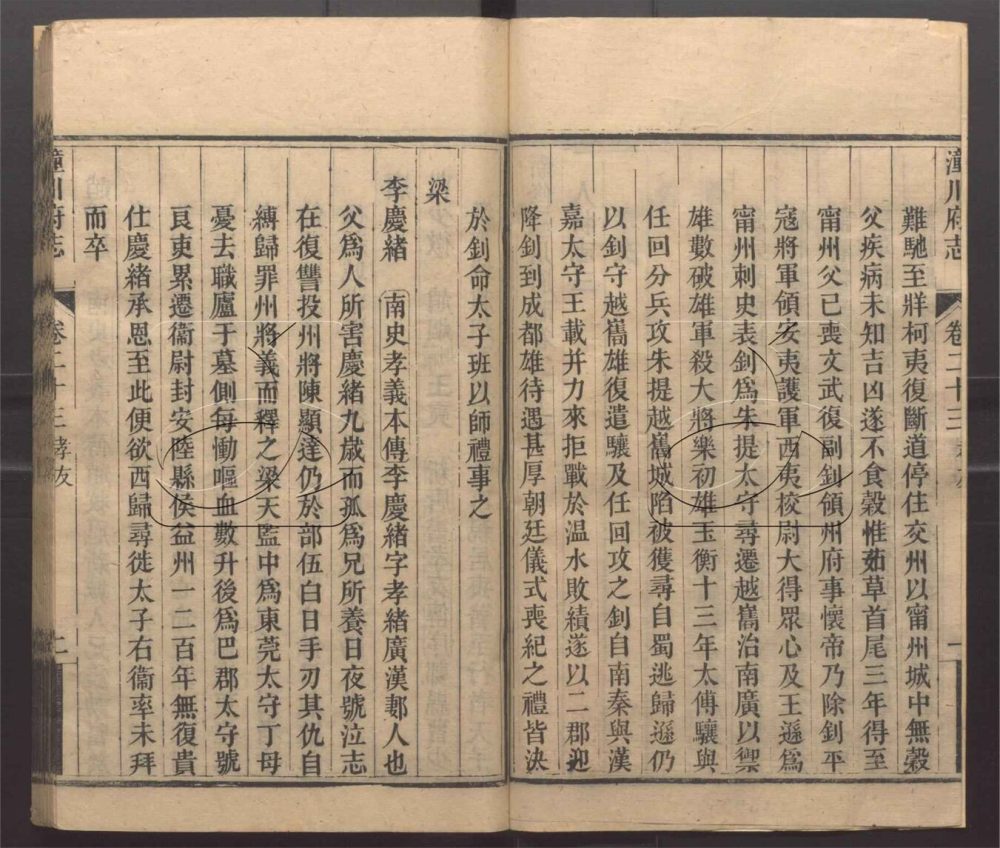 潼川府志 卷二十三 孝友 一
難馳至牂柯夷復斷道停住交州以甯州城中無穀
父疾病未知吉凶遂不食穀惟茹草首尾三年得至
甯州父已喪文武復副釗領州府事懷帝乃除釗平
寇將軍領安夷護軍西夷校尉大得眾心及王遜為
甯州刺史表釗為朱提太守尋遷越嶲治南廣以禦
雄數破雄軍殺大將樂初雄玉衡十三年太傅驤與
任回分兵攻朱提越嶲城陷被獲尋自蜀逃歸遜仍
以釗守越嶲雄復遣驤及任回攻之釗自南秦與漢
嘉太守王載并力來拒戰於温水敗績遂以二郡迎
降釗到成都雄待遇甚厚朝廷儀式喪紀之禮皆決
於釗命太子班以師禮事之
梁
李慶緒 南史孝義本傳李慶緒字孝緒廣漢郪人也
父為人所害慶緒九歲而孤為兄所養日夜號泣志
在復讐投州將陳顯達仍於部伍白日手刃其仇自
縛歸罪州將義而釋之梁天監中為東莞太守丁母
憂去職廬于墓側每慟嘔血數升後為巴郡太守號
良吏累遷衞尉封安陸縣侯益州一二百年無復貴
仕慶緒承恩至此便欲西歸尋徙太子右衞率未拜
而卒
潼川府志 卷二十三 孝友 二